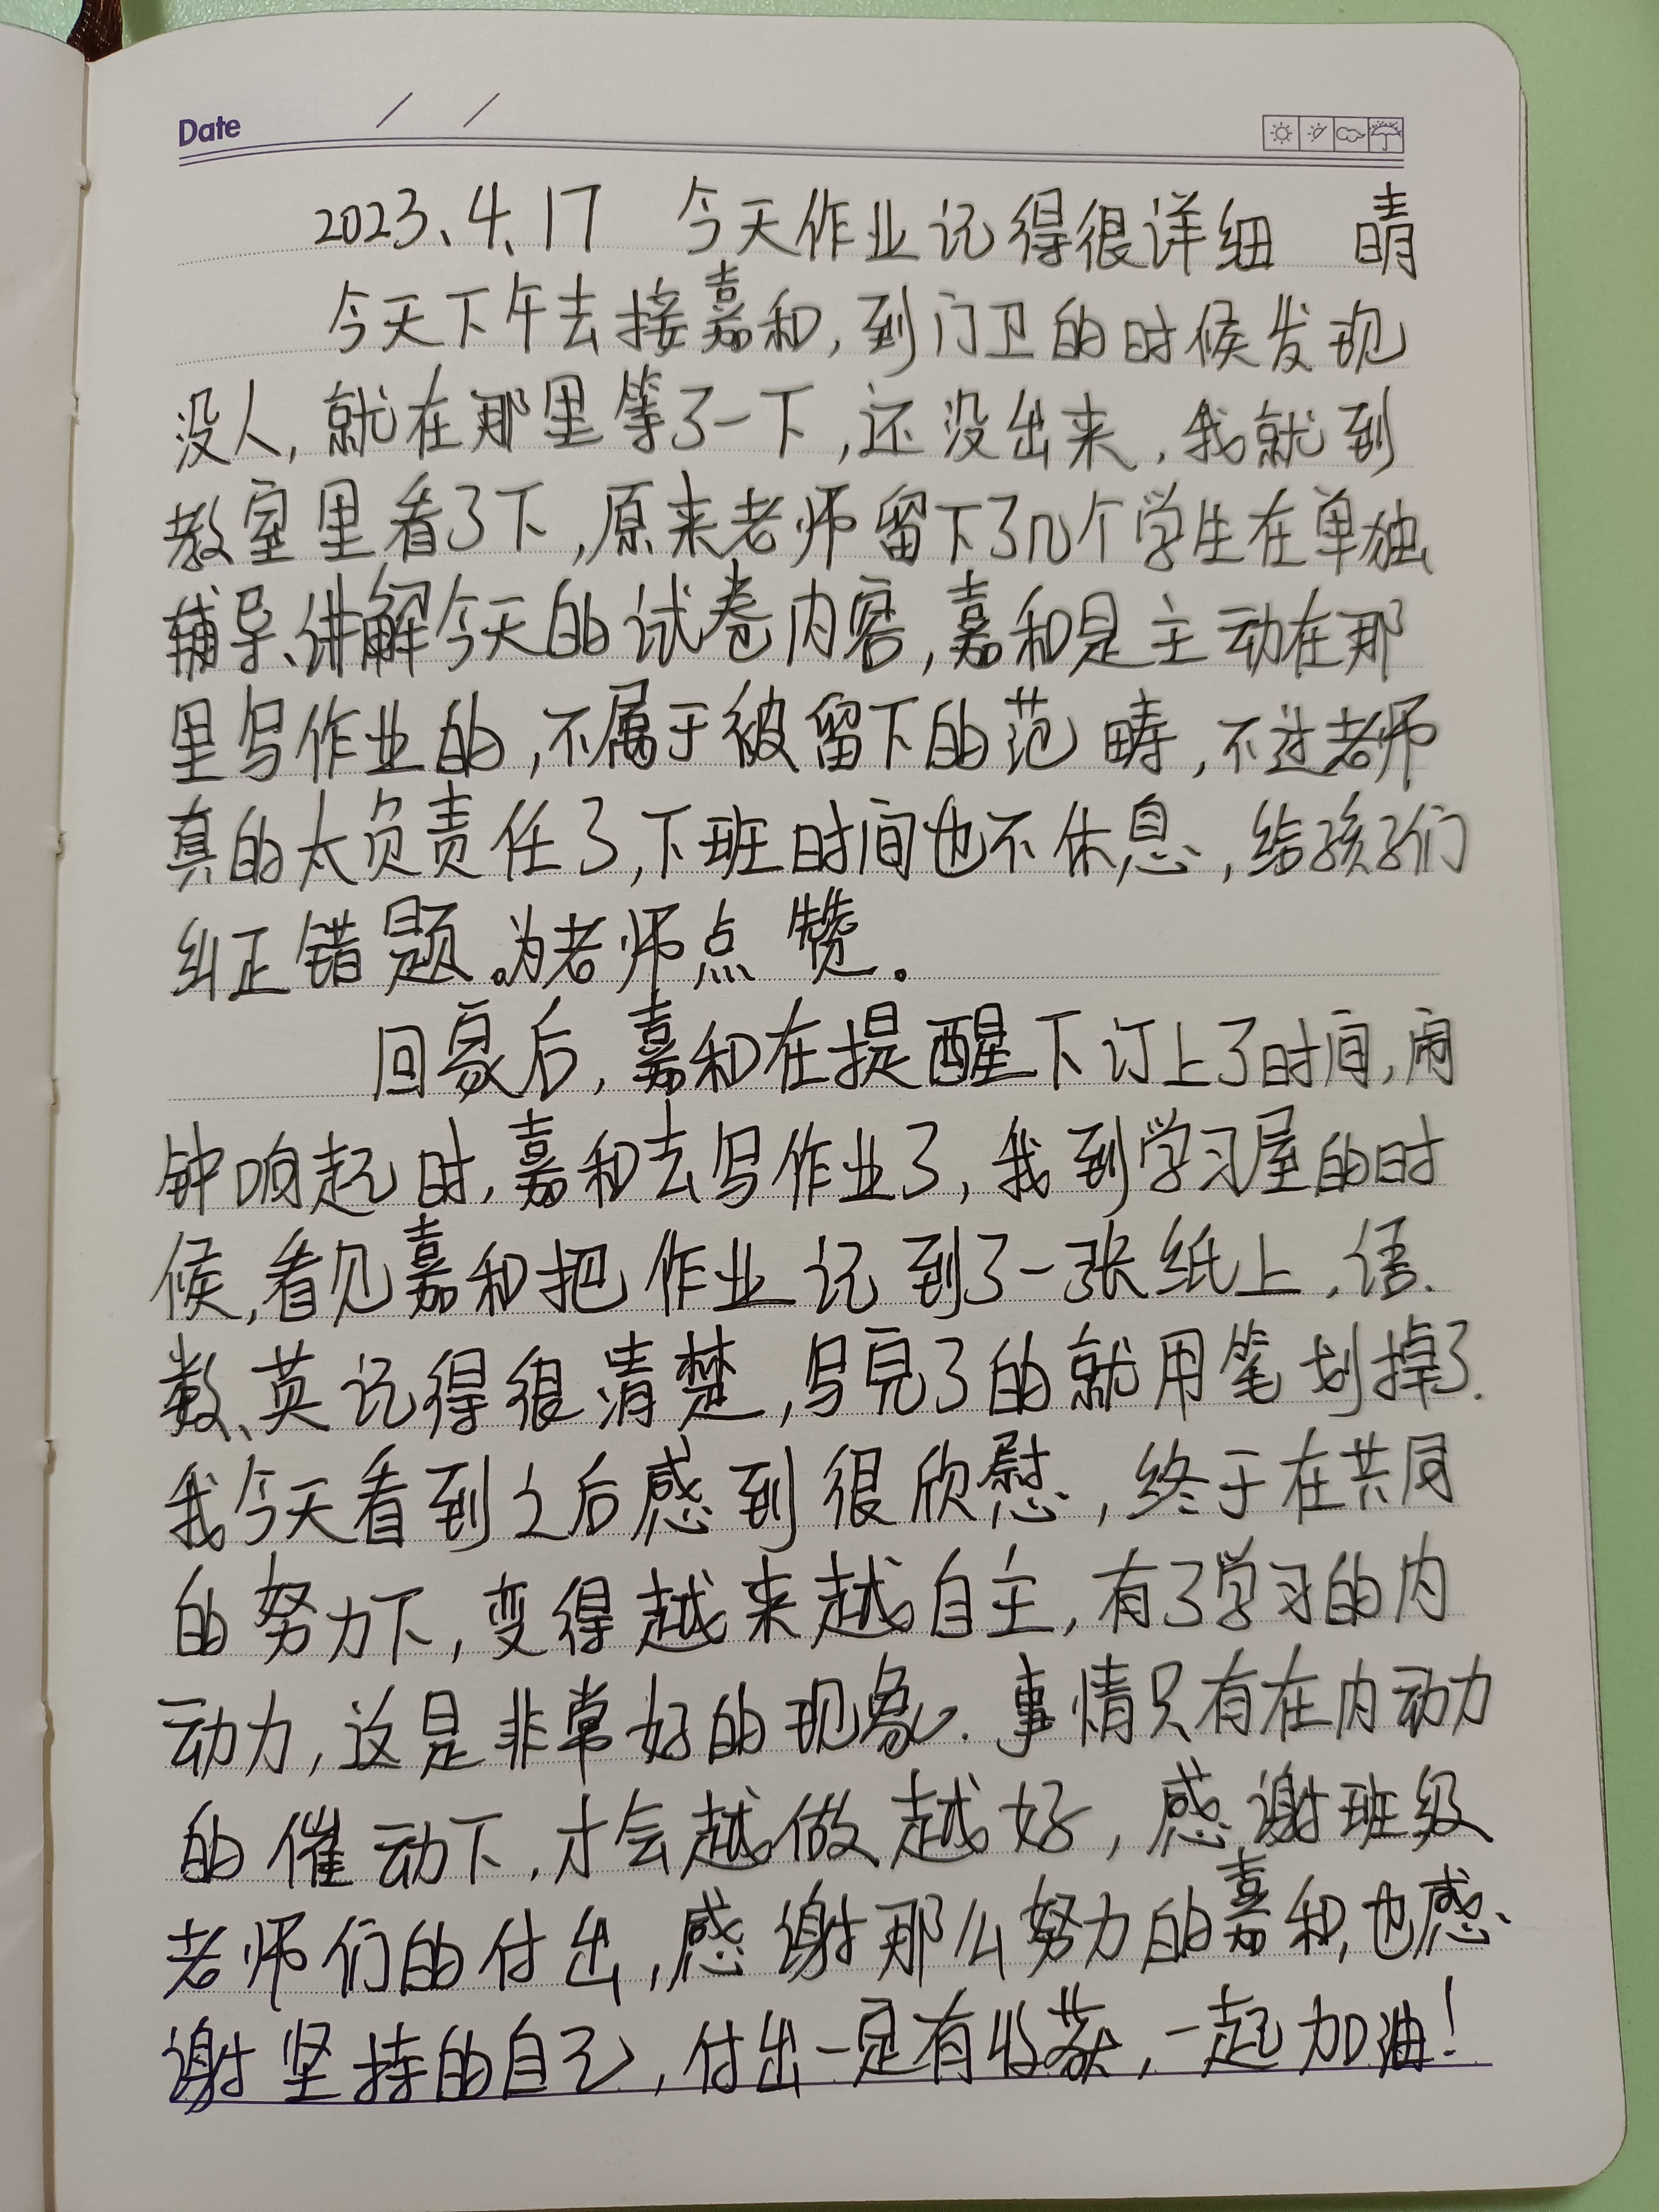 Date / /
2023、4、17 今天作业记得很详细 晴
今天下午去接嘉和,到门卫的时候发现
没人,就在那里等了一下,还没出来,我就到
教室里看了下,原来老师留下了几个学生在单独
辅导、讲解今天的试卷内容,嘉和是主动在那
里写作业的,不属于被留下的范畴,不过老师
真的太负责任了,下班时间也不休息,给孩子们
纠正错题。为老师点赞。
回家后,嘉和在提醒下订上了时间,闹
钟响起时,嘉和去写作业了,我到学习屋的时
候,看见嘉和把作业记到了一张纸上,语、
数、英记得很清楚,写完了的就用笔划掉了.
我今天看到之后感到很欣慰,终于在共同
的努力下,变得越来越自主,有了学习的内
动力,这是非常好的现象.事情只有在内动力
的催动下,才会越做越好,感谢班级
老师们的付出,感谢那么努力的嘉和,也感
谢坚持的自己,付出一定有收获,一起加油!